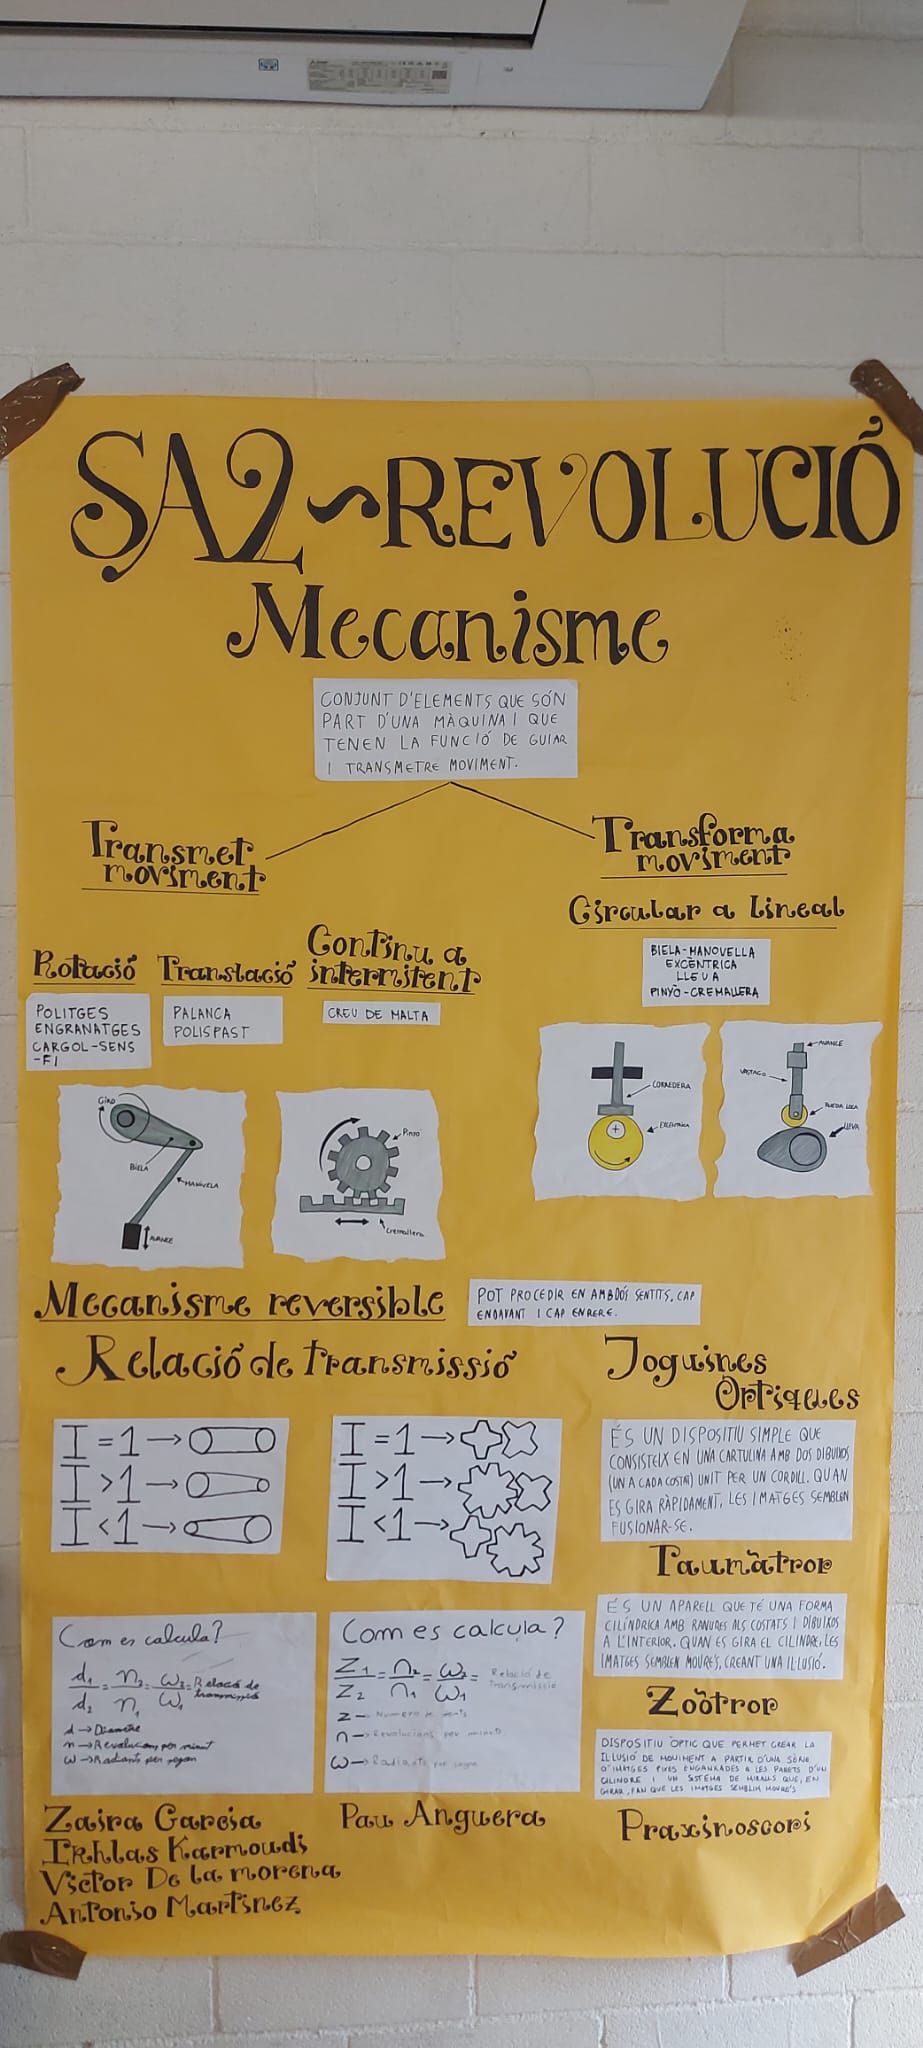 SA2~REVOLUCIÓ
Mecanisme
CONJUNT D'ELEMENTS QUE SÓN
PART D'UNA MÀQUINA I QUE
TENEN LA FUNCIÓ DE GUIAR
I TRANSMETRE MOVIMENT.
Transmet
moviment
Transforma
moviment
Circular a Lineal
BIELA-MANOVELLA
EXCÈNTRICA
LLEVA
PINYÓ-CREMALLERA
Rotació
POLITGES
ENGRANATGES
CARGOL-SENS
-FI
Translació
PALANCA
POLISPAST
Continu a
intermitent
CREU DE MALTA
GIRO
BIELA
MANUELA
AVANCE
Pinyo
Cremallera
CORREDERA
EXCENTRICA
AVANCE
VASTAGO
RUEDA LOCA
LLEVA
Mecanisme reversible
POT PROCEDIR EN AMBDÓS SENTITS, CAP
ENDAVANT I CAP ENRERE.
Relació de transmissió
I = 1 →
I > 1 →
I < 1 →
I = 1 →
I > 1 →
I < 1 →
Com es calcula?
d1/d2 = n2/n1 = ω2/ω1 = Relació de transmissió
d → Diametre
n → Revolucions per minut
ω → Radiants per segon
Com es calcula?
Z1/Z2 = n2/n1 = ω2/ω1 = Relació de transmissió
z → Numero de dents
n → Revolucions per minut
ω → Radiants per segon
Joguines
Òptiques
ÉS UN DISPOSITIU SIMPLE QUE
CONSISTEIX EN UNA CARTULINA AMB DOS DIBUIXOS
(UN A CADA COSTAT) UNIT PER UN CORDILL. QUAN
ES GIRA RÀPIDAMENT, LES IMATGES SEMBLEN
FUSIONAR-SE.
Taumàtrop
ÉS UN APARELL QUE TÉ UNA FORMA
CILÍNDRICA AMB RANURES ALS COSTATS I DIBUIXOS
A L'INTERIOR. QUAN ES GIRA EL CILINDRE, LES
IMATGES SEMBLEN MOURE'S, CREANT UNA IL·LUSIÓ.
Zoòtrop
DISPOSITIU ÒPTIC QUE PERMET CREAR LA
IL·LUSIÓ DE MOVIMENT A PARTIR D'UNA SÈRIE
D'IMATGES FIXES ENGANXADES A LES PARETS D'UN
CILINDRE I UN SISTEMA DE MIRALLS QUE, EN
GIRAR, FAN QUE LES IMATGES SEMBLIN MOURE'S
Praxinoscopi
Zaira Garcia
Ikhlas Karmoudi
Victor De la morena
Antonio Martinez
Pau Anguera